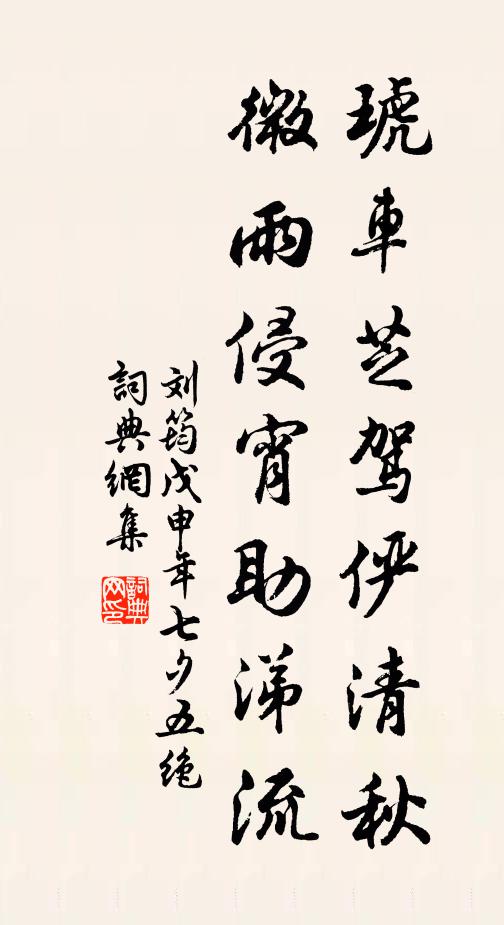 琥車芝駕儼清秋
微雨侵宵助涕流
刘筠戊申年七夕五绝
詞典網集
詞典
网印